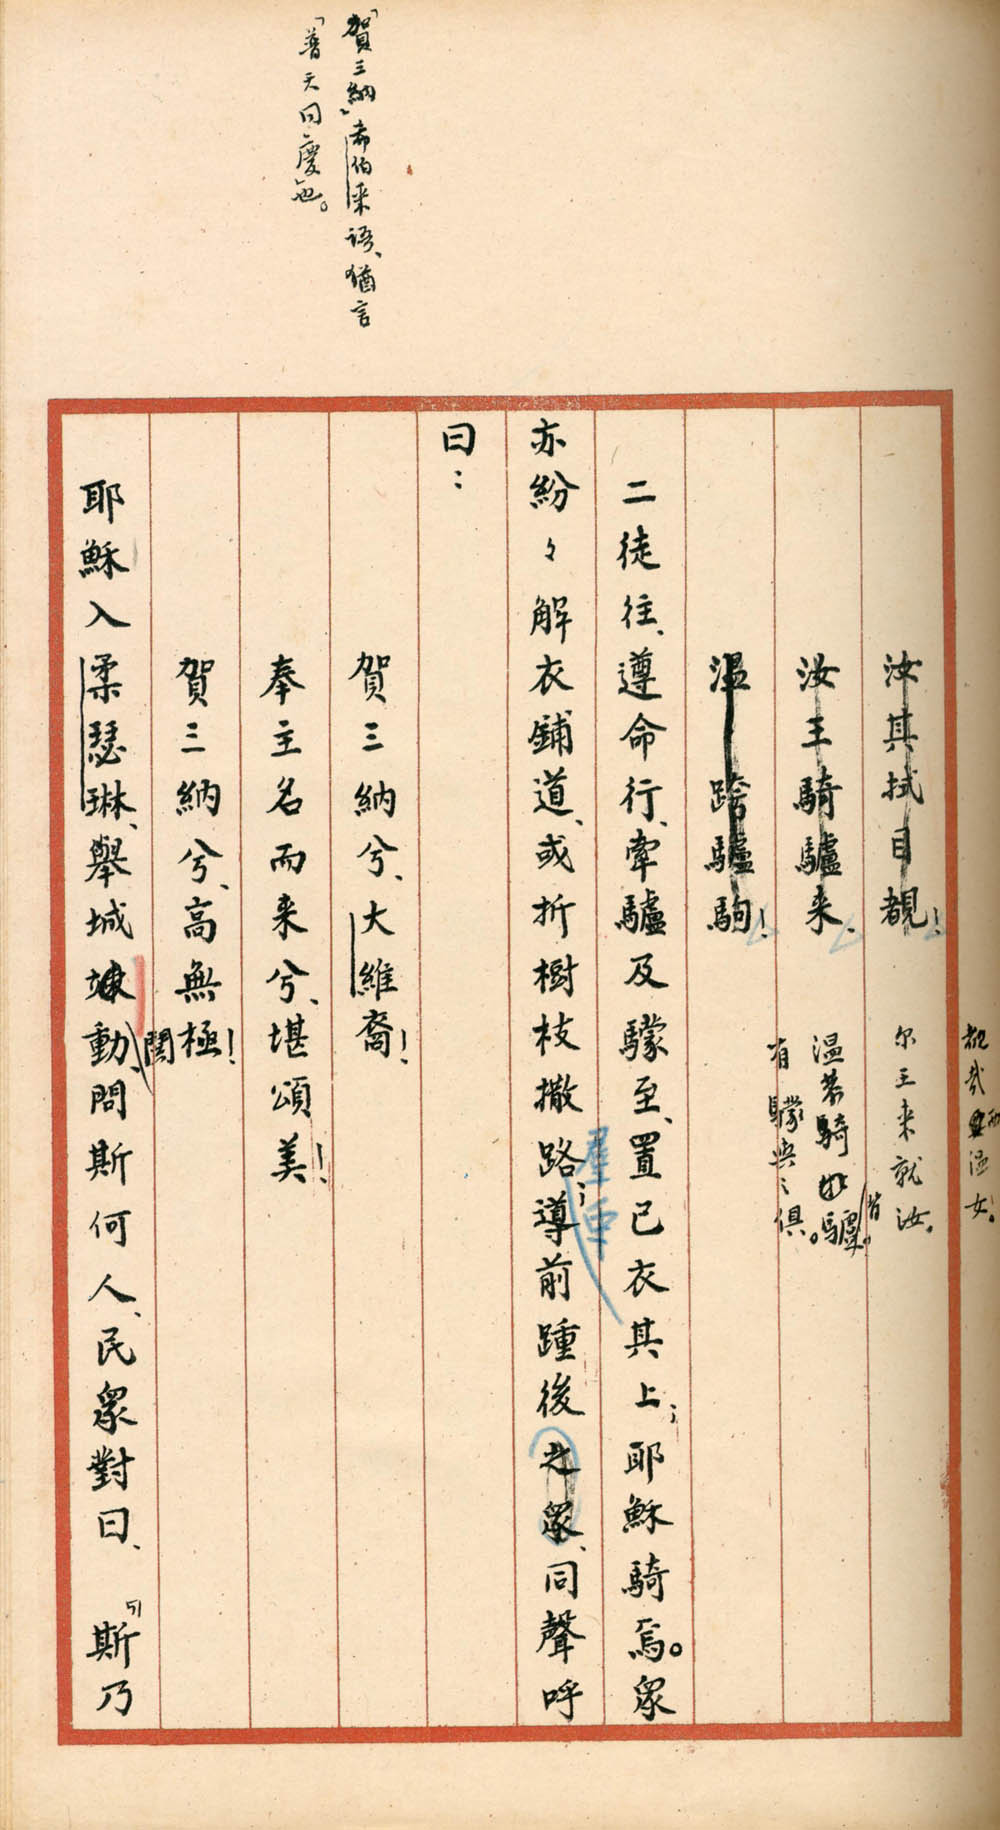 「賀三納」希伯來语、猶言
「普天同慶也。
覩哉西温女！
尔王来就汝。
温恭騎牝驢。
有驖與之俱。
汝其拭目覩！
汝王騎驢来、
温跨驢駒！
二徒往、遵命行、牽驢及驖至、置己衣其上；耶穌騎焉。眾
亦紛々解衣鋪道、或折樹枝撒路；導前踵後之眾、同聲呼
羣眾
曰：
賀三納兮、大維裔！
奉主名而来兮、堪頌美！
賀三納兮、高無極！
耶穌入柔瑟琳、舉城動、問斯何人、民眾對曰、「斯乃
鬨